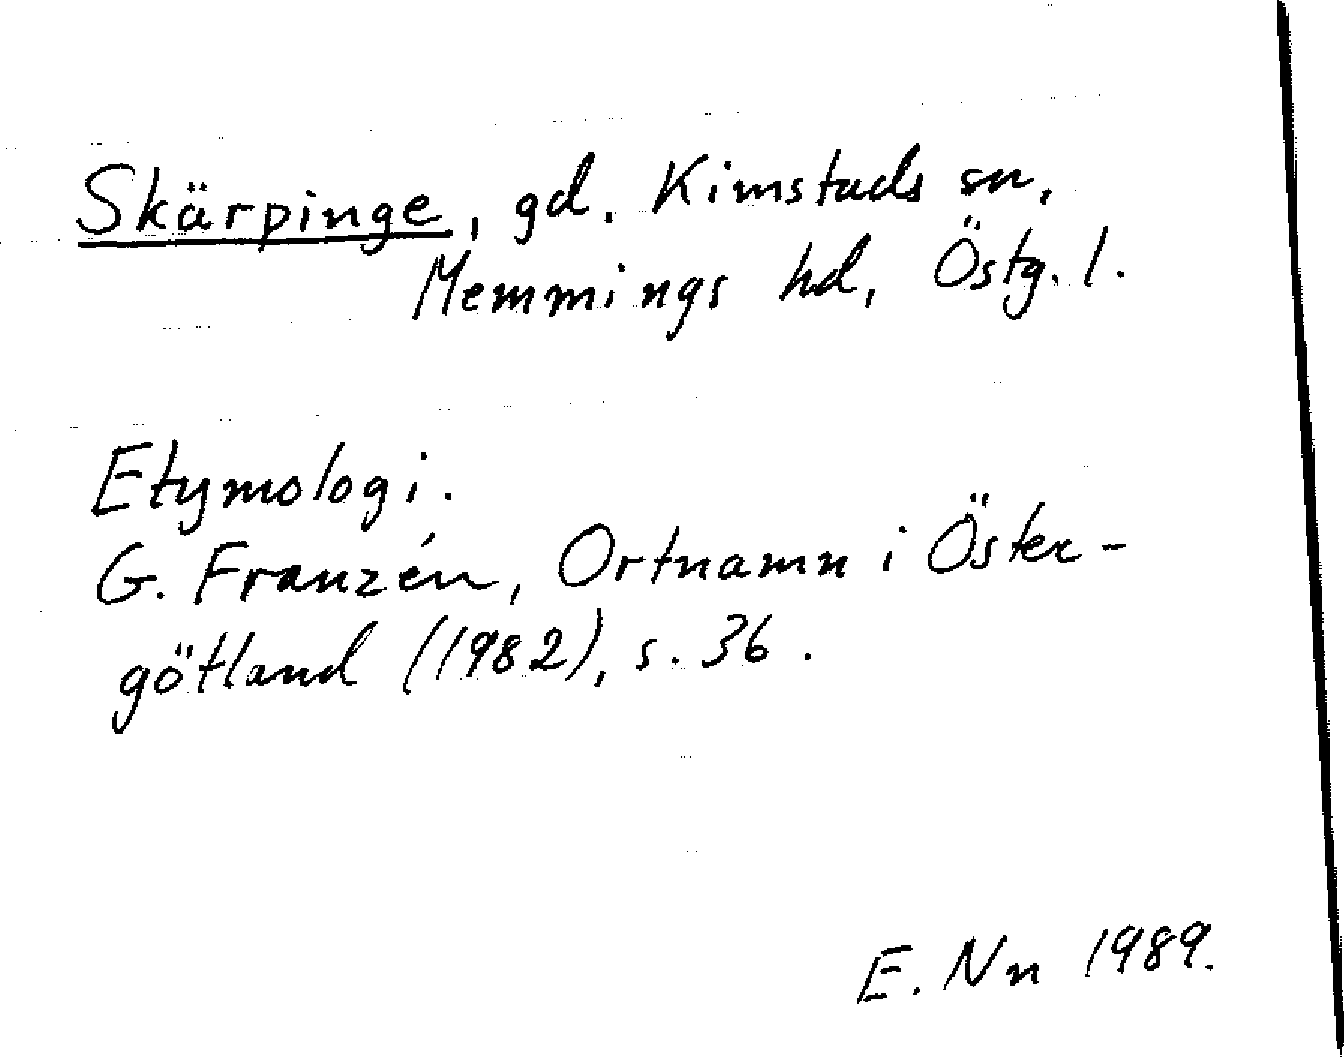 Skärpinge, gd. Kimstads sn,
Memmings hd, Östg. l.
Etymologi.
G. Franzén, Ortnamn i Öster-
götland (1982), s. 36.
E. Nn 1989.